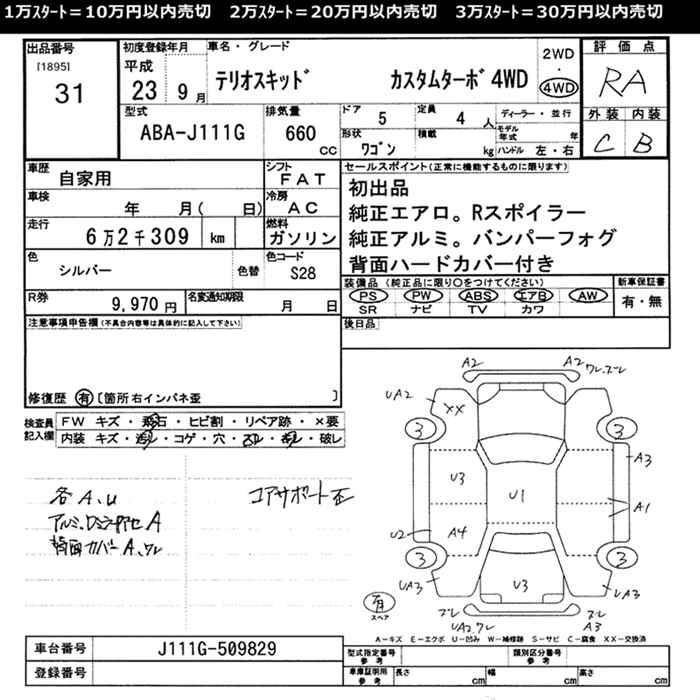 1万ｽﾀｰﾄ＝10万円以内売切　2万ｽﾀｰﾄ＝20万円以内売切　3万ｽﾀｰﾄ＝30万円以内売切
出品番号
[1895]
31
初度登録年月
平成
23 9月
車名・グレード
テリオスキッド　カスタムターボ4WD
2WD
・
4WD
評価点
RA
型式
ABA-J111G
排気量
660
cc
ドア
5
定員
4人
形状
ワゴン
積載
kg
ディーラー・並行
モデル年式　年
ハンドル 左・右
外装 内装
C B
車歴
自家用
シフト
FAT
車検
年　月(　日)
冷房
AC
走行
6万2千309 km
燃料
ガソリン
色
シルバー
色替
色コード
S28
R券
9,970円
名変通知期限
月　日
セールスポイント(正常に機能するものに限ります)
初出品
純正エアロ。Rスポイラー
純正アルミ。バンパーフォグ
背面ハードカバー付き
装備品(純正品に限り○をつけてください)
PS PW ABS エアB AW
SR ナビ TV カワ
新車保証書
有・無
後日品
注意事項申告欄(不具合内容等は具体的に記入して下さい)
修復歴 有 [箇所 右インパネ歪 ]
検査員記入欄
FW キズ・飛石・ヒビ割・リペア跡・×要
内装 キズ・汚れ・コゲ・穴・スレ・劣化・破レ
各A、U
背面カバーA、ワレ
コアサポート歪
A2
A2 ワレ、ズレ
UA2
XX
3
3
A3
U3
U1
A1
U2
A4
3
3
UA3
U3
UA3
有
スペア
ズレ
UA2、ワレ
ズレ
A3
A－キズ E－エクボ U－凹み W－補修跡 S－サビ C－腐食 XX－交換済
車台番号
J111G-509829
登録番号
型式指定番号
参考
類別区分番号
参考
車庫証明用
参考
長さ cm
幅 cm
高さ cm